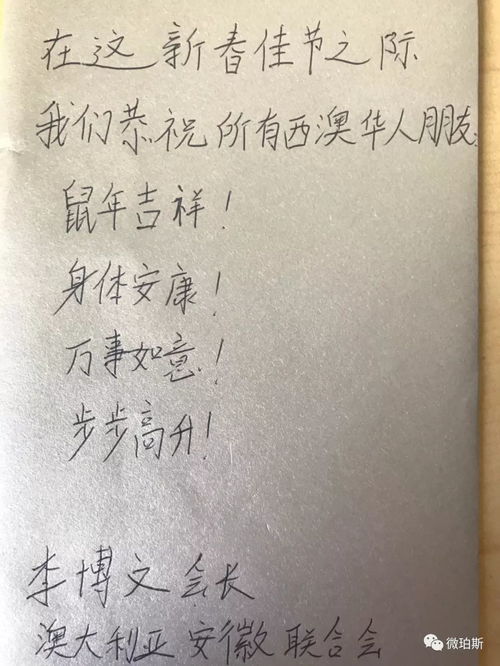 在这新春佳节之际
我们恭祝所有西澳华人朋友:
鼠年吉祥!
身体安康!
万事如意!
步步高升!
李博文会长
澳大利亚安徽联合会
微珀斯